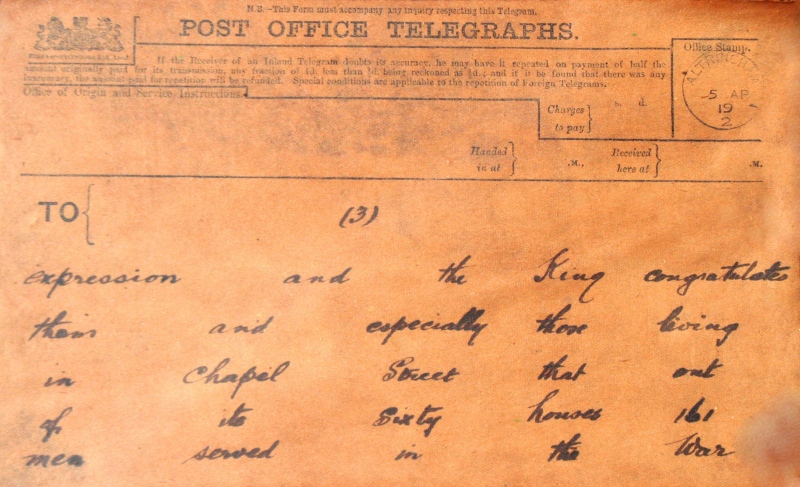 N.B.—This Form must accompany any inquiry respecting this Telegram.
POST OFFICE TELEGRAPHS.
If the Receiver of an Inland Telegram doubts its accuracy, he may have it repeated on payment of half the
amount originally paid for its transmission, any fraction of 1d. less than ½d. being reckoned as ½d.; and if it be found that there was any
inaccuracy, the amount paid for repetition will be refunded. Special conditions are applicable to the repetition of Foreign Telegrams.
Office of Origin and Service Instructions.
Office Stamp.
5 AP
19
2
Charges to pay
s. d.
Handed in at
.M.,
Received here at
.M.
TO
(3)
expression and the King congratulates
them and especially those living
in Chapel Street that out
of its Sixty houses 161
men served in the War